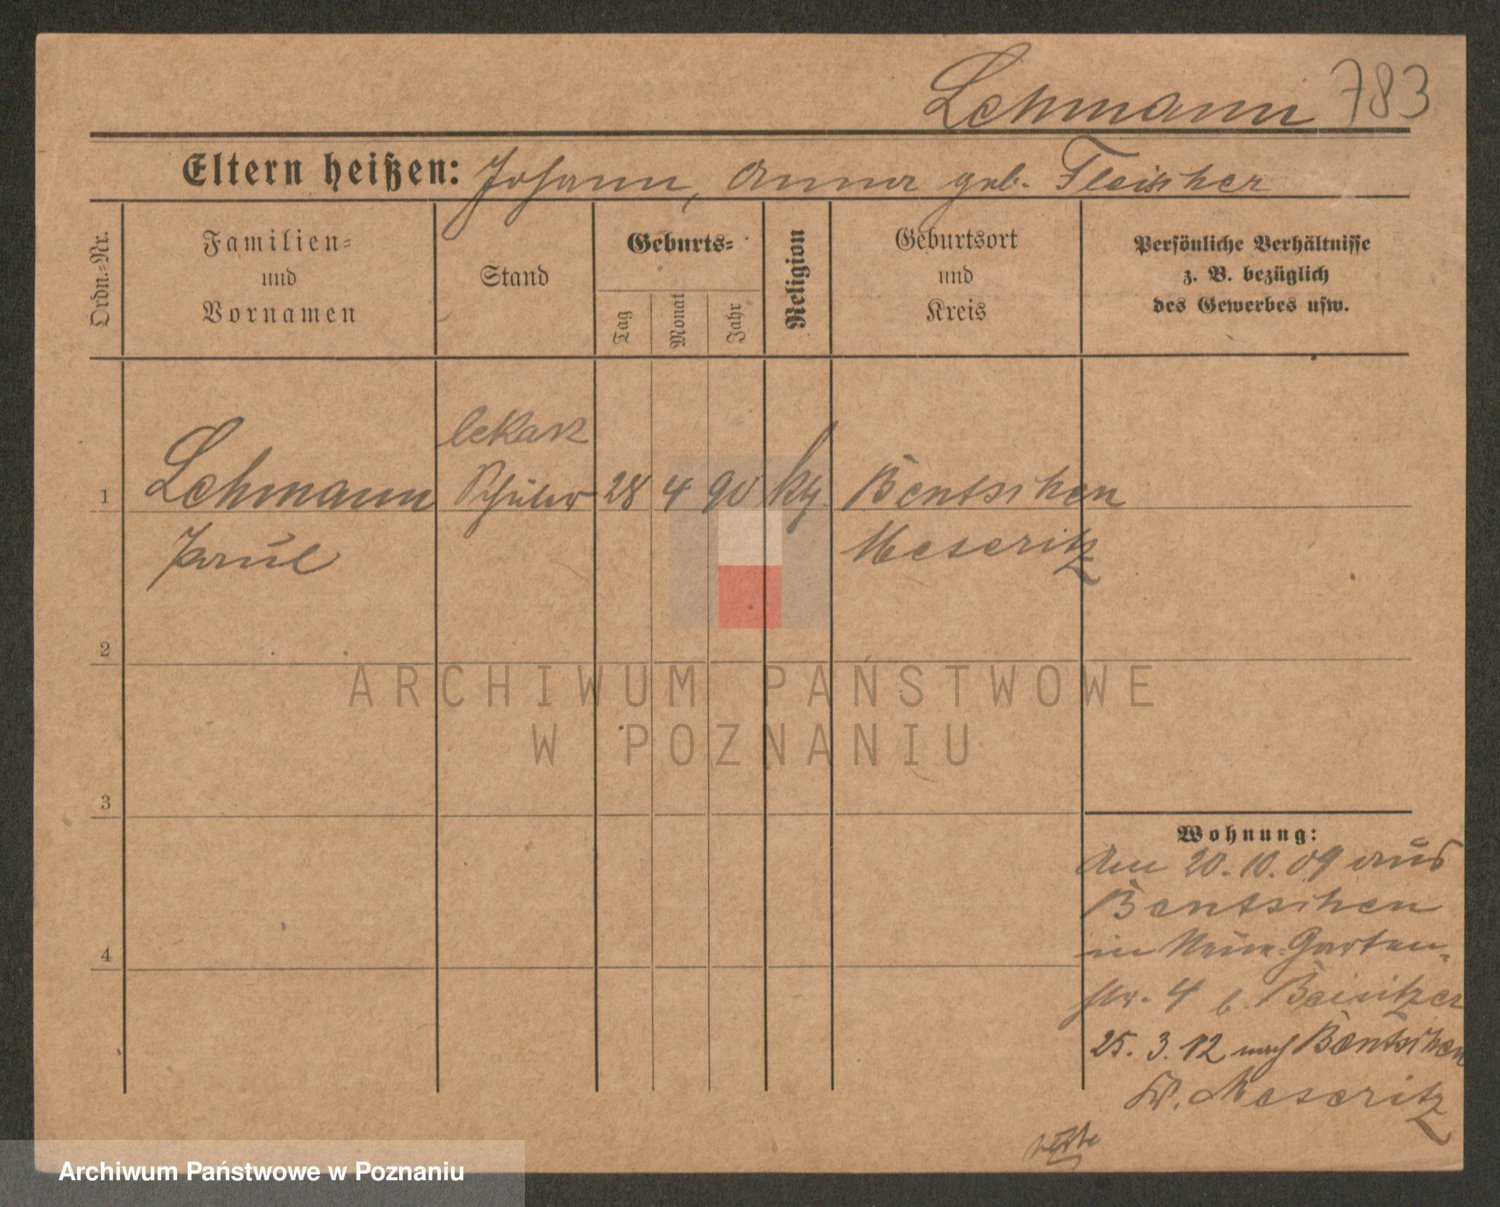 Lehmann 783
Eltern heißen: Johann, Anna geb. Fleischer
Ordn.-Nr.
Familien-
und
Vornamen
Stand
Geburts-
Tag
Monat
Jahr
Religion
Geburtsort
und
Kreis
Persönliche Verhältnisse
z. B. bezüglich
des Gewerbes usw.
lekarz
1 Lehmann Schüler 28 4 90 kth. Bentschen
Paul Meseritz
2
ARCHIWUM PAŃSTWOWE
W POZNANIU
3
Wohnung:
Am 20.10.09 aus
Bentschen
in Neue Garten-
str. 4 b. Beisitzer
4
25. 3. 12 nach Bentschen
Kr. Meseritz
Archiwum Państwowe w Poznaniu